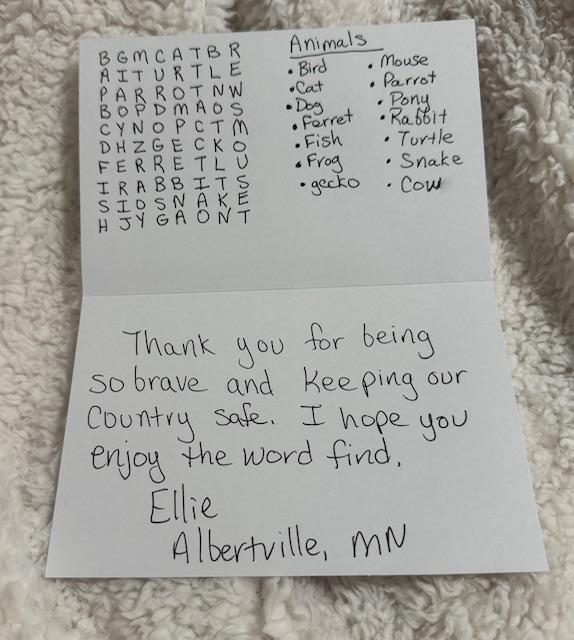 B G M C A T B R
A I T U R T L E
P A R R O T N W
B O P D M A O S
C Y N O P C T M
D H Z G E C K O
F E R R E T L U
I R A B B I T S
S I O S N A K E
H J Y G A O N T
Animals
• Bird
• Cat
• Dog
• Ferret
• Fish
• Frog
• gecko
• Mouse
• Parrot
• Pony
• Rabbit
• Turtle
• Snake
• Cow
Thank you for being
so brave and keeping our
Country safe. I hope you
enjoy the word find.
Ellie
Albertville, MN